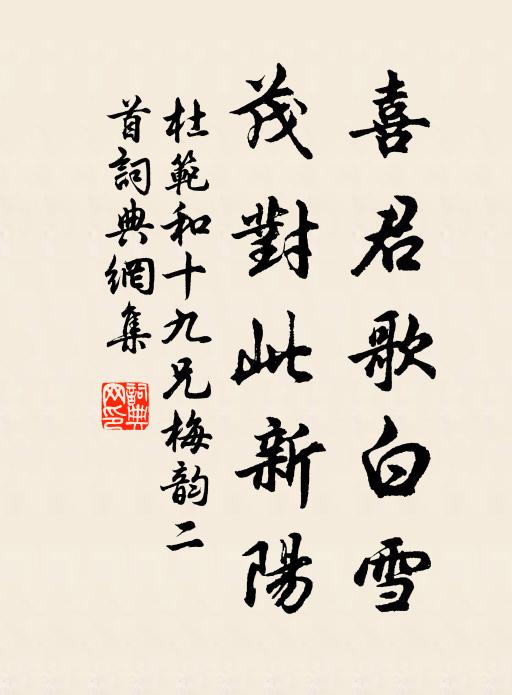 喜君歌白雪
茂對此新陽
杜範和十九兄梅韵二
首詞典網集
詞典
网印